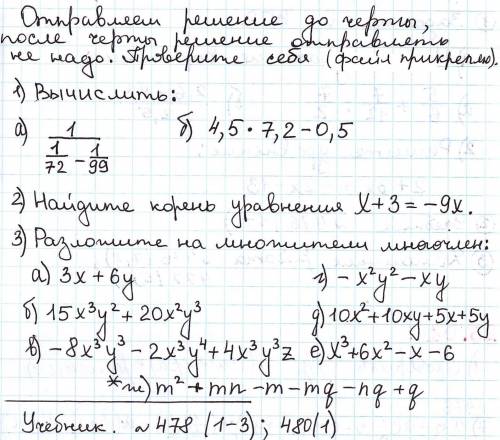 Отправляем решение до черты,
после черты решение отправлять
не надо. Проверите себя (файл прикреплю).
1) Вычислить:
а) 1/(1/72 - 1/99) б) 4,5 · 7,2 - 0,5
2) Найдите корень уравнения x+3 = -9x.
3) Разложите на множители многочлен:
а) 3x + 6y г) -x²y² - xy
б) 15x³y² + 20x²y³ д) 10x² + 10xy + 5x + 5y
в) -8x³y³ - 2x³y⁴ + 4x³y³z е) x³ + 6x² - x - 6
*ж) m² + mn - m - mq - nq + q
Учебник. ~ 478 (1-3); 480(1)